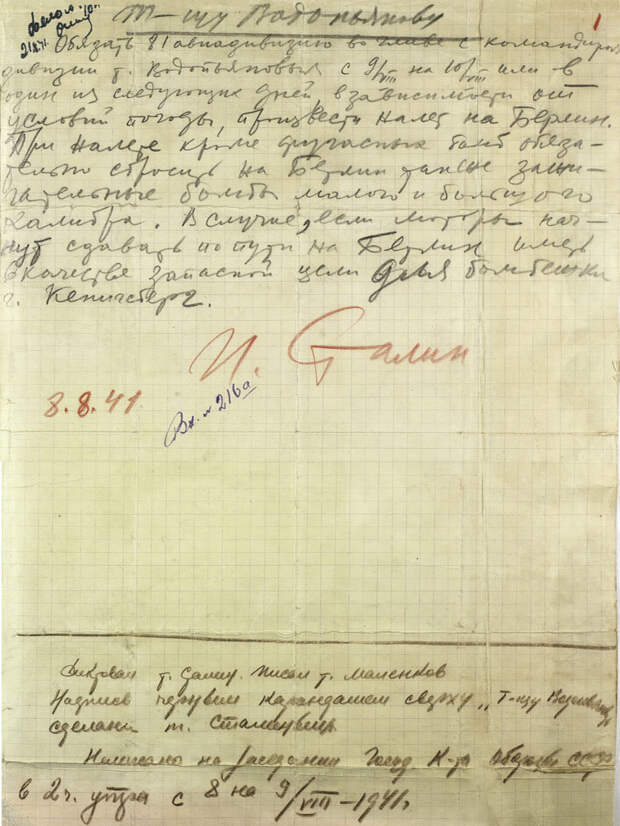 Т-щу Водопьянову
1
21.8.41.
Обязать 81 авиадивизию во главе с командиром
дивизии т. Водопьяновым с 9/VIII на 10/VIII или в
один из следующих дней в зависимости от
условий погоды, произвести налет на Берлин.
При налете кроме фугасных бомб обяза-
тельно сбросить на Берлин также зажи-
гательные бомбы малого и большого
калибра. В случае, если моторы нач-
нут сдавать по пути на Берлин иметь
в качестве запасной цели для бомбежки
г. Кенигсберг.
И. Сталин
8.8.41
Вх. № 216а
Диктовал т. Сталин. Писал т. Маленков
Надпись черным карандашем сверху „Т-щу
сделана т. Сталиным
Написано на заседании Госуд К-та Обороны СССР
в 2 ч. утра с 8 на 9/VIII-1941г.